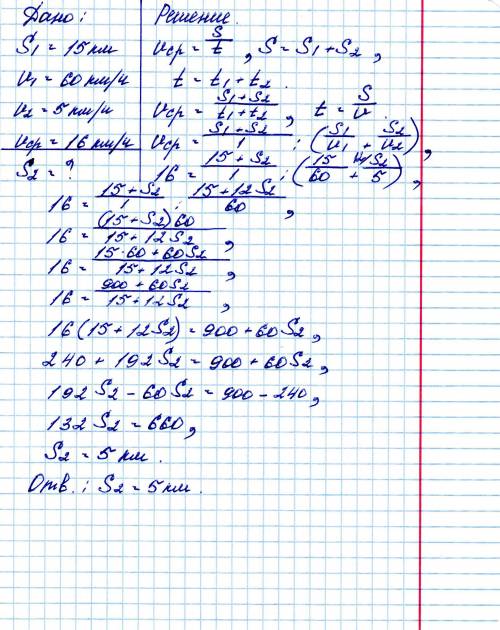 Дано:
S₁ = 15 км
v₁ = 60 км/ч
v₂ = 5 км/ч
vср = 16 км/ч
S₂ = ?
Решение.
vср = S/t, S = S₁ + S₂,
t = t₁ + t₂.
vср = (S₁ + S₂)/(t₁ + t₂), t = S/v.
vср = (S₁ + S₂)/1 : (S₁/v₁ + S₂/v₂),
16 = (15 + S₂)/1 : (15/60 + S₂/5),
16 = (15 + S₂)/1 : (15 + 12S₂)/60,
16 = (15 + S₂)60/(15 + 12S₂),
16 = (15·60 + 60S₂)/(15 + 12S₂),
16 = (900 + 60S₂)/(15 + 12S₂),
16(15 + 12S₂) = 900 + 60S₂,
240 + 192S₂ = 900 + 60S₂,
192S₂ - 60S₂ = 900 - 240,
132S₂ = 660,
S₂ = 5 км.
Отв.: S₂ = 5 км.